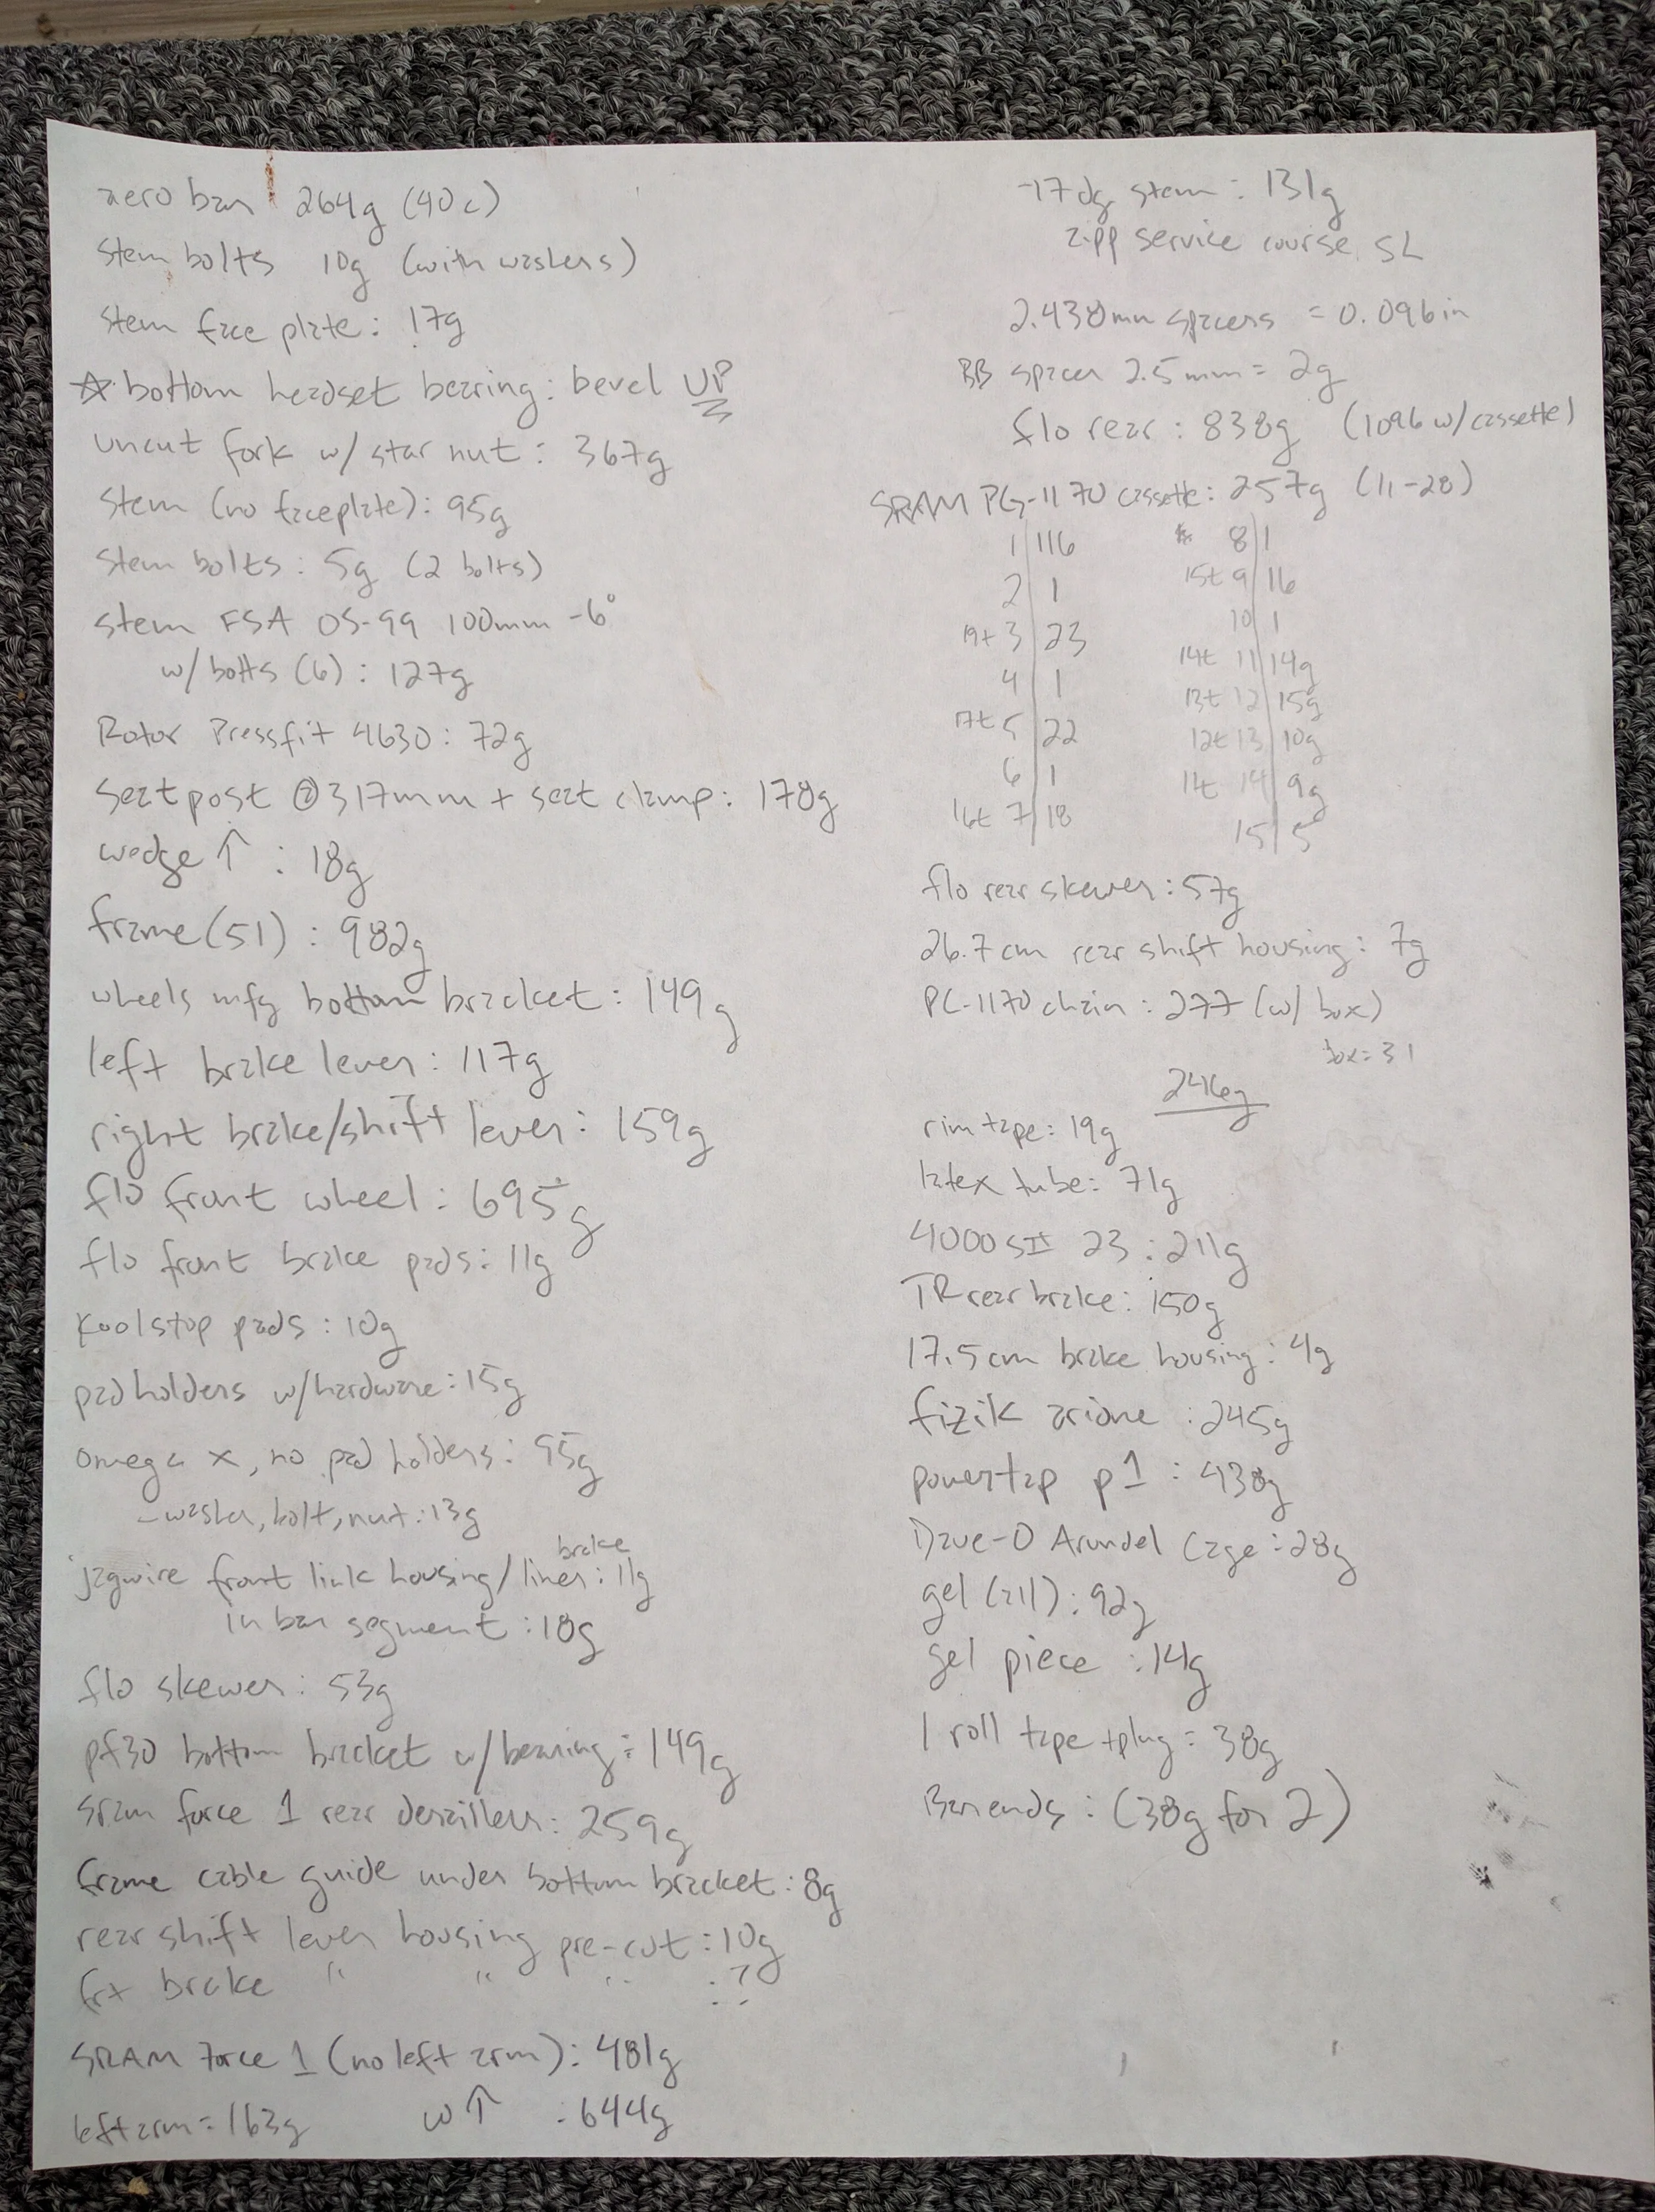 aero bar 264g (40c)
stem bolts 10g (with washers)
stem face plate: 17g
☆ bottom headset bearing: bevel UP
uncut fork w/ star nut: 367g
stem (no faceplate): 95g
stem bolts: 5g (2 bolts)
stem FSA OS-99 100mm -6°
w/ bolts (6): 127g
Rotor Pressfit 4630: 72g
seatpost @317mm + seat clamp: 178g
wedge ↑ : 18g
frame (51): 982g
wheels mfg bottom bracket: 149g
left brake lever: 117g
right brake/shift lever: 159g
flo front wheel: 695g
flo front brake pads: 11g
Koolstop pads: 10g
pad holders w/hardware: 15g
omega x, no pad holders: 95g
- washer, bolt, nut: 13g
brake
jagwire front link housing/liner: 11g
in bar segment: 18g
flo skewer: 53g
pf30 bottom bracket w/bearing: 149g
sram force 1 rear derailleur: 259g
frame cable guide under bottom bracket: 8g
rear shift lever housing pre-cut: 10g
frt brake " " " : ?
SRAM Force 1 (no left arm): 481g
left arm = 163g w↑ : 644g
-17dg stem: 131g
zipp service course SL
2.438mm spacers = 0.096in
BB spacer 2.5mm = 2g
flo rear: 838g (1096 w/cassette)
SRAM PG-1170 cassette: 257g (11-28)
1 | 116
2 | 1
19t 3 | 23
4 | 1
17t 5 | 22
6 | 1
16t 7 | 18
8 | 1
15t 9 | 16
10 | 1
14t 11 | 14g
13t 12 | 15g
12t 13 | 10g
11t 14 | 9g
15 | 5
flo rear skewer: 57g
26.7cm rear shift housing: 7g
PC-1170 chain: 277 (w/ box)
box = 31
246g
rim tape: 19g
latex tube: 71g
4000sII 23: 211g
TR rear brake: 150g
17.5cm brake housing: 4g
fizik arione: 245g
powertap p1: 438g
Dave-O Arundel Cage: 28g
gel (all): 92g
gel piece: 14g
1 roll tape + plug = 38g
Bar ends: (38g for 2)